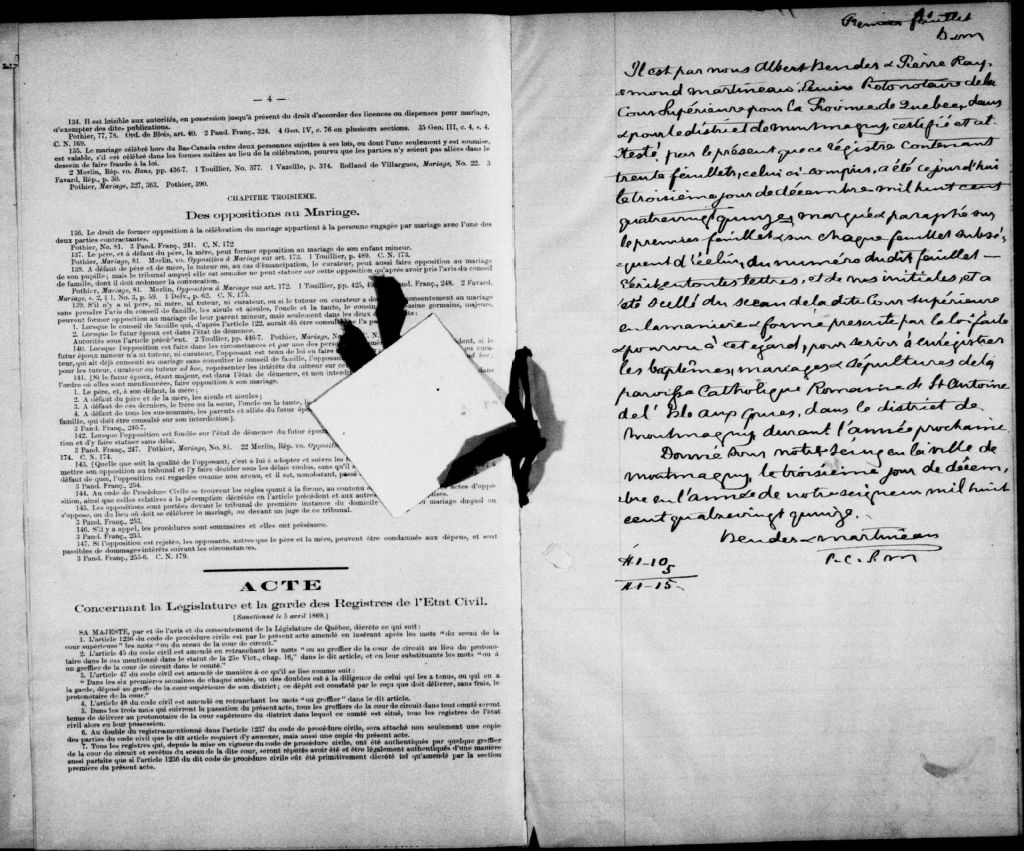 — 4 —
134. Il est loisible aux autorités, en possession jusqu'à présent du droit d'accorder des licences ou dispenses pour mariage,
d'exempter des dites publications.
Pothier, 77, 78. Ord. de Blois, art. 40. 2 Pand. Franç., 324. 4 Geo. IV, c. 76 en plusieurs sections. 35 Geo. III, c. 4, s. 4.
C. N. 169.
135. Le mariage célébré hors du Bas-Canada entre deux personnes sujettes à ses lois, ou dont l'une seulement y est soumise,
est valable, s'il est célébré dans les formes usitées au lieu de la célébration, pourvu que les parties n'y soient pas allées dans le
dessein de faire fraude à la loi.
2 Merlin, Rép. vo Bans, pp. 436-7. 1 Touillier, No. 577. 1 Vazeille, p. 314. Rolland de Villargues, Mariage, No. 22. 3
Favard, Rép., p. 50.
Pothier, Mariage, 327, 363. Pothier, 390.
CHAPITRE TROISIÈME.
Des oppositions au Mariage.
136. Le droit de former opposition à la célébration du mariage appartient à la personne engagée par mariage avec l'une des
deux parties contractantes.
Pothier, No. 81. 3 Pand. Franç., 241. C. N. 172
137. Le père, et à défaut du père, la mère, peut former opposition au mariage de son enfant mineur.
Pothier, Mariage, 81. Merlin, vo. Opposition à Mariage sur art. 173. 1 Touillier, p. 489. C. N. 173.
138. A défaut de père et de mère, le tuteur ou, au cas d'émancipation, le curateur, peut aussi faire opposition au mariage
de son pupille; mais le tribunal auquel elle est soumise ne peut statuer sur cette opposition qu'après avoir pris l'avis du conseil
de famille, dont il doit ordonner la convocation.
Pothier, Mariage, 81. Merlin, Opposition à Mariage sur art. 172. 1 Touillier, pp. 425, 49 Pand. Franç., 248. 2 Favard,
Mariage, s. 2, § 1, No. 3, p. 59. 1 Delv., p. 62. C. N. 175.
139. S'il n'y a ni père, ni mère, ni tuteur, ni curateur, ou si le tuteur ou curateur a do consentement au mariage
sans prendre l'avis du conseil de famille, les aïeuls et aïeules, l'oncle et la tante, le cousin germaine, majeurs,
peuvent former opposition au mariage de leur parent mineur, mais seulement dans les deux
1. Lorsque le conseil de famille qui, d'après l'article 122, aurait dû être consulté la pas
2. Lorsque le futur époux est dans l'état de démence.
Autorités sous l'article précédent. 2 Touillier, pp. 446-7. Pothier, Mariage, N
140. Lorsque l'opposition est faite dans les circonstances et par une des person dent, si le
futur époux mineur n'a ni tuteur, ni curateur, l'opposant est tenu de lui en faire
teur, qui ait déjà consenti au mariage sans consulter le conseil de famille, l'opposan ad hoc;
pour les tuteur, curateur ou tuteur ad hoc, représenter les intérêts du mineur sur ce
141. [Si le futur époux, étant majeur, est dans l'état de démence, et non interdit dans
l'ordre où elles sont mentionnées, faire opposition à son mariage.
1. Le père, et, à son défaut, la mère;
2. A défaut du père et de la mère, les aïeuls et aïeules;
3. A défaut de ces derniers, le frère ou la sœur, l'oncle ou la tante, le
4. A défaut de tous les sus-nommés, les parents et alliés du futur épo
famille, qui doit être consulté sur son interdiction].
3 Pand. Franç., 246-7.
142. Lorsque l'opposition est fondée sur l'état de démence du futur époux
tion et d'y faire statuer sans délai.
3 Pand. Franç., 247. Pothier, Mariage, No. 81. 22 Merlin, Rép. vo. Opposition
174. C. N. 174.
143. [Quelle que soit la qualité de l'opposant, c'est à lui à adopter et suivre les
mettre son opposition au tribunal et l'y faire décider sous les délais voulus, sans qu'il
défaut de quoi, l'opposition est regardée comme non avenu, et il est, nonobstant, passé
3 Pand. Franç., 254.
144. Au code de Procédure Civile se trouvent les règles quant à la forme, au contenu actes d'oppo-
sition, ainsi que celles relatives à la péremption décrétée en l'article précédent et aux autres uses.
145. Les oppositions sont portées devant le tribunal de première instance du domicile mariage duquel on
s'oppose, ou du lieu où doit se célébrer le mariage, ou devant un juge de ce tribunal.
3 Pand. Franç., 253.
146. S'il y a appel, les procédures sont sommaires et elles ont préséance.
3 Pand. Franç., 253.
147. Si l'opposition est rejetée, les opposants, autres que le père et la mère, peuvent être condamnés aux dépens, et sont
passibles de dommages-intérêts suivant les circonstances.
3 Pand. Franç., 255-6. C. N. 179.
ACTE
Concernant la Législature et la garde des Registres de l'Etat Civil.
(Sanctionné le 5 avril 1869.)
SA MAJESTE, par et de l'avis et du consentement de la Législature de Québec, décrète ce qui suit:
1. L'article 1236 du code de procédure civile est par le présent acte amendé en insérant après les mots "du sceau de la
cour supérieure" les mots "ou du sceau de la cour de circuit."
2. L'article 45 du code civil est amendé en retranchant les mots "ou au greffier de la cour de circuit au lieu du protono-
taire dans le cas mentionné dans le statut de la 25e Vict., chap. 16," dans le dit article, et en leur substituants les mots "ou à
un greffier de la cour de circuit dans le comté."
3. L'article 47 du code civil est amendé de manière à ce qu'il se lise comme suit:
"Dans les six premières semaines de chaque année, un des doubles est à la diligence de celui qui les a tenus, ou qui en a
la garde, déposé au greffe de la cour supérieure de son district; ce dépôt est constaté par le reçu que doit délivrer, sans frais, le
protonotaire de la cour."
4. L'article 48 du code civil est amendé en retranchant les mots "ou greffier" dans le dit article.
5. Dans les trois mois qui suivront la passation du présent acte, tous les greffiers de la cour de circuit dans tout comté seront
tenus de délivrer au protonotaire de la cour supérieure du district dans lequel ce comté est situé, tous les registres de l'état
civil alors en leur possession.
6. Au double du registre mentionné dans l'article 1237 du code de procédure civile, sera attaché non seulement une copie
des parties du code civil que le dit article requiert d'y annexer, mais aussi une copie du présent acte.
7. Tous les registres qui, depuis la mise en vigueur du code de procédure civile, ont été authentiqués par quelque greffier
de la cour de circuit et revêtus du sceau de la dite cour, seront réputés avoir été et être légalement authentiqués d'une manière
aussi parfaite que si l'article 1236 du dit code de procédure civile eût été primitivement décrété tel qu'amendé par la section
première du présent acte.
Premier feuillet
B & M
Il est par nous Albert Bender & Pierre Ray-
mond Martineau, Protonotaire de la
Cour Supérieure pour la Province de Quebec, dans
& pour le district de Montmagny, certifié et at-
testé, par le présent que ce Régistre contenant
trente feuillets, celui ci compris, a été ce jourd'hui
le troisième jour de décembre mil huit cent
quatrevingt quinze, marqué & paraphé sur
le premier feuillet & sur chaque feuillet subsé-
quent d'icelui, du numéro du dit feuillet —
écrit en toutes lettres, et de nos initiales et a
été scellé du sceau de la dite Cour Supérieure
en la manière & forme prescrite par la loi faite
& pourvu à cet égard, pour servir à enregistrer
les baptêmes, mariages & sépultures de la
paroisse Catholique Romaine de St Antoine
de l'Isle aux Grues, dans le district de
Montmagny durant l'année prochaine.
Donné sous notre Seing en la ville de
Montmagny, le troisième jour de décem,
bre en l'année de notre seigneur mil huit
cent quatrevingt quinze.
Bender & Martineau
P. C. S. M
#1-10
5
#1-15